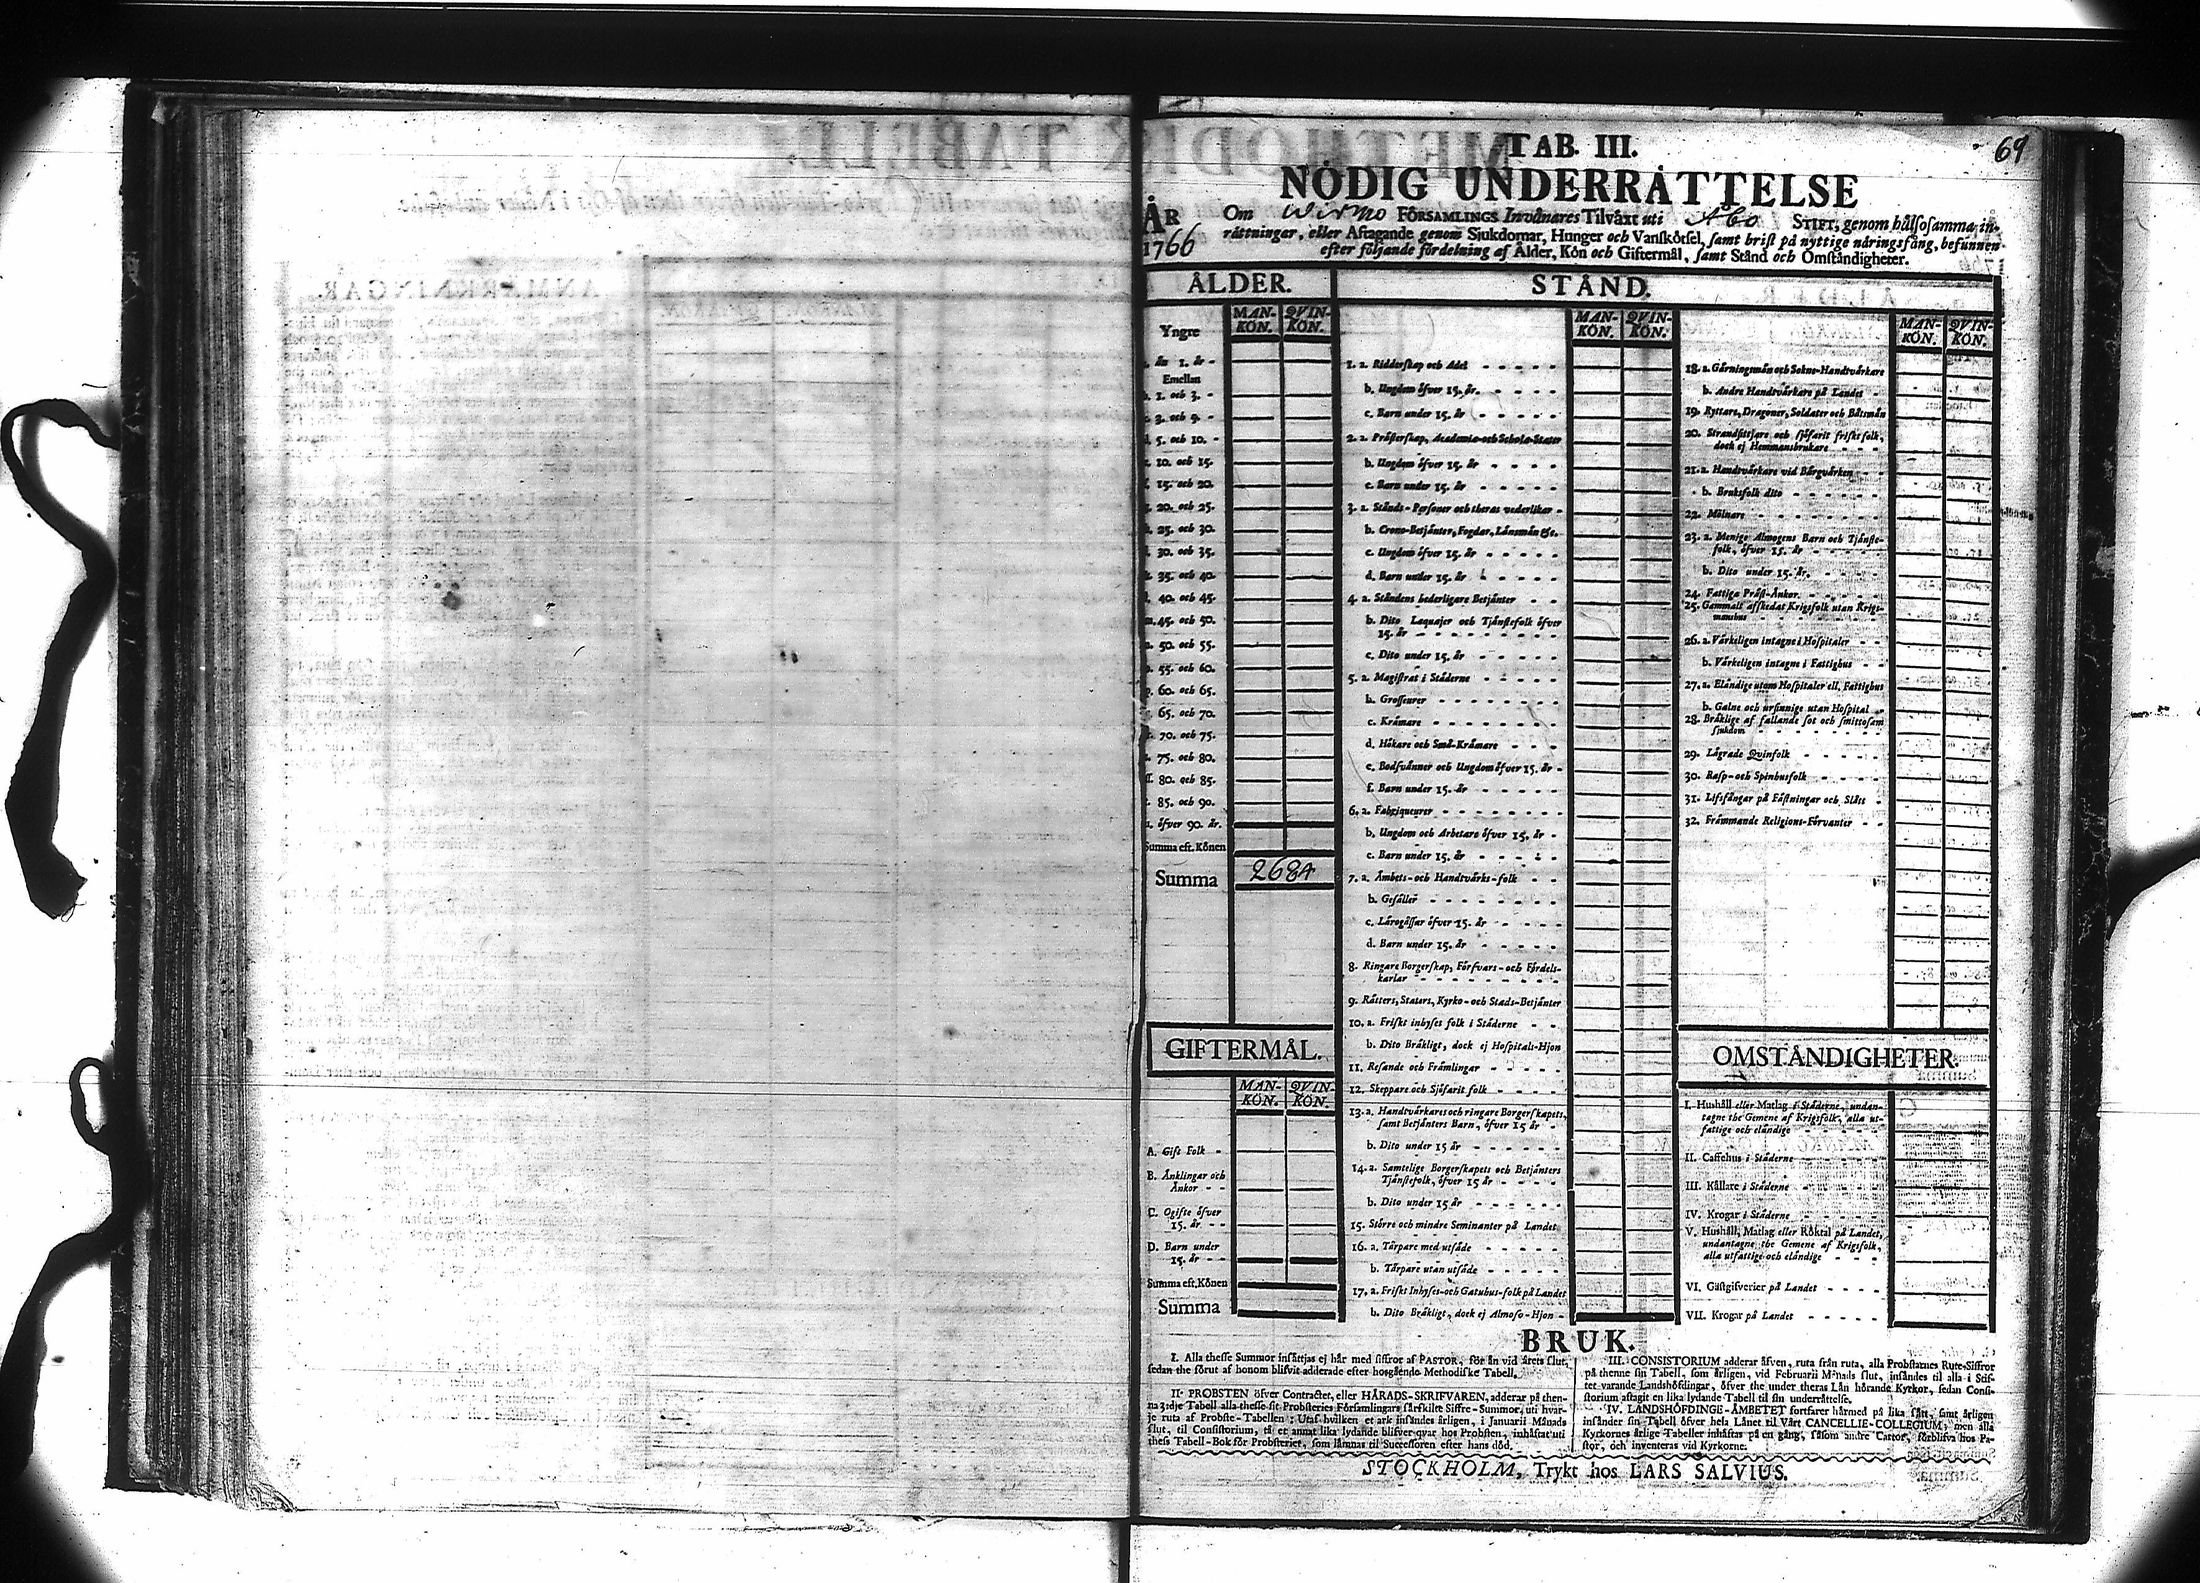 69
TAB. III.
NÖDIG UNDERRÅTTELSE
ÅR 1766
Om Wirmo FÖRSAMLINGS Invånares Tilvåxt uti Åbo STIFT, genom hålsosamma in-
råttningar, eller Aftagande genom Sjukdomar, Hunger och Vanskötsel, samt brist på nyttige nåringsfång, befunnen
efter följande fördelning af Ålder, Kön och Giftermål, samt Stånd och Omståndigheter.
ÅLDER.
MAN-KÖN. QVIN-KÖN.
Yngre
än 1. år -
Emellan
1. och 3. -
3. och 5. -
5. och 10. -
10. och 15.
15. och 20.
20. och 25.
25. och 30.
30. och 35.
35. och 40.
40. och 45.
m. 45. och 50.
50. och 55.
55. och 60.
60. och 65.
65. och 70.
70. och 75.
75. och 80.
80. och 85.
85. och 90.
öfver 90. år.
Summa eft. Könen
Summa 2684
GIFTERMÅL.
MAN-KÖN. QVIN-KÖN.
A. Gift Folk -
B. Änklingar och
Änkor - -
C. Ogifte öfver
15. år - -
D. Barn under
15. år - -
Summa eft. Könen
Summa
STÅND.
MAN-KÖN. QVIN-KÖN.
1. a. Ridderskap och Adel
b. Ungdom öfver 15. år
c. Barn under 15. år
2. a. Pråsterskap, Academiæ-och Scholæ-Stater
b. Ungdom öfver 15. år
c. Barn under 15. år
3. a. Stånds-Personer och theras vederlikar
b. Crono-Betjänter, Fogdar, Länsmän &c.
c. Ungdom öfver 15. år
d. Barn under 15. år
4. a. Ståndens hederligare Betjänter
b. Dito Laquajer och Tjänstefolk öfver
15. år
c. Dito under 15. år
5. a. Magistrat i Städerne
b. Grosseurer
c. Kråmare
d. Hökare och Små-Kråmare
e. Bodsvånner och Ungdom öfver 15. år
f. Barn under 15. år
6. a. Fabriqueurer
b. Ungdom och Arbetare öfver 15. år
c. Barn under 15. år
7. a. Åmbets-och Handtvårks-folk
b. Gesåller
c. Lårogåssar öfver 15. år
d. Barn under 15. år
8. Ringare Borgerskap, Försvars-och Fördels-
karlar
9. Råtters, Staters, Kyrko-och Stads-Betjänter
10. a. Friskt inhyses folk i Städerne
b. Dito Bråkligt, dock ej Hospitals-Hjon
11. Resande och Främlingar
12. Skeppare och Sjöfarit folk
13. a. Handtvårkares och ringare Borgerskapets,
samt Betjänters Barn, öfver 15 år
b. Dito under 15 år
14. a. Samtelige Borgerskapets och Betjänters
Tjänstefolk, öfver 15 år
b. Dito under 15 år
15. Större och mindre Seminanter på Landet
16. a. Tårpare med utsåde
b. Tårpare utan utsåde
17. a. Friskt Inhyses-och Gatuhus-folk på Landet
b. Dito Bråkligt, dock ej Almoso-Hjon
MAN-KÖN. QVIN-KÖN.
18. a. Gårningsmån och Sokne-Handtvårkare
b. Andre Handtvårkare på Landet
19. Ryttare, Dragoner, Soldater och Båtsmån
20. Strandsittjare och sjöfarit friskt folk,
dock ej Hemmansbrukare
21. a. Handtvårkare vid Bårgvårken
b. Bruksfolk dito
22. Mölnare
23. a. Menige Almogens Barn och Tjänste-
folk, öfver 15. år
b. Dito under 15. år.
24. Fattiga Pråst-Änkor
25. Gammalt afskedat Krigsfolk utan Krigs-
manshus
26. a. Vårkeligen intagne i Hospitaler
b. Vårkeligen intagne i Fattighus
27. a. Elåndige utom Hospitaler ell. Fattighus
b. Galne och ursinnige utan Hospital
28. Bråklige af fallande sot och smittosam
sjukdom
29. Lågrade Qvinfolk
30. Rasp-och Spinhusfolk
31. Lifsfångar på Fåstningar och Slått
32. Fråmmande Religions-Förvanter
OMSTÅNDIGHETER.
I. Hushåll eller Matlag i Städerne, undan-
tagne the Gemene af Krigsfolk, alla ut-
fattige och elåndige
II. Caffehus i Städerne
III. Källare i Städerne
IV. Krogar i Städerne
V. Hushåll, Matlag eller Röktal på Landet,
undantagne the Gemene af Krigsfolk,
alla utfattige och elåndige
VI. Gåstgifverier på Landet
VII. Krogar på Landet
BRUK.
I. Alla thesse Summor insåttjas ej hår med siffror af PASTOR, för ån vid årets slut,
sedan the förut af honom blifvit adderade efter hosgående Methodiske Tabell.
II. PROBSTEN öfver Contractet, eller HÅRADS-SKRIFVAREN, adderar på then-
na 3:dje Tabell alla thesse sit Probsteries Församlingars sårskilte Siffre-Summor, uti hvar-
je ruta af Probste-Tabellen: Utaf hvilken et ark insåndes årligen, i Januarii Månads
slut, til Consistorium, tå et annat lika lydande blifver qvar hos Probsten, inhåftat uti
thess Tabell-Bok för Probsteriet, som låmnas til Successoren efter hans död.
III. CONSISTORIUM adderar åfven, ruta från ruta, alla Probstarnes Rute-Siffror
på thenne sin Tabell, som årligen, vid Februarii Månads slut, insåndes til alla i Stif-
tet varande Landshöfdingar, öfver the under theras Lån hörande Kyrkor, sedan Consi-
storium aftagit en lika lydande Tabell til sin underråttelse.
IV. LANDSHÖFDINGE-ÅMBETET fortfarer hårmed på lika sått, samt årligen
insånder sin Tabell öfver hela Lånet til Vårt CANCELLIE-COLLEGIUM; men alla
Kyrkornes årlige Tabeller inhåftas på en gång, såsom andre Cartor, förblifva hos Pa-
stor, och inventeras vid Kyrkorne.
STOCKHOLM, Trykt hos LARS SALVIUS.